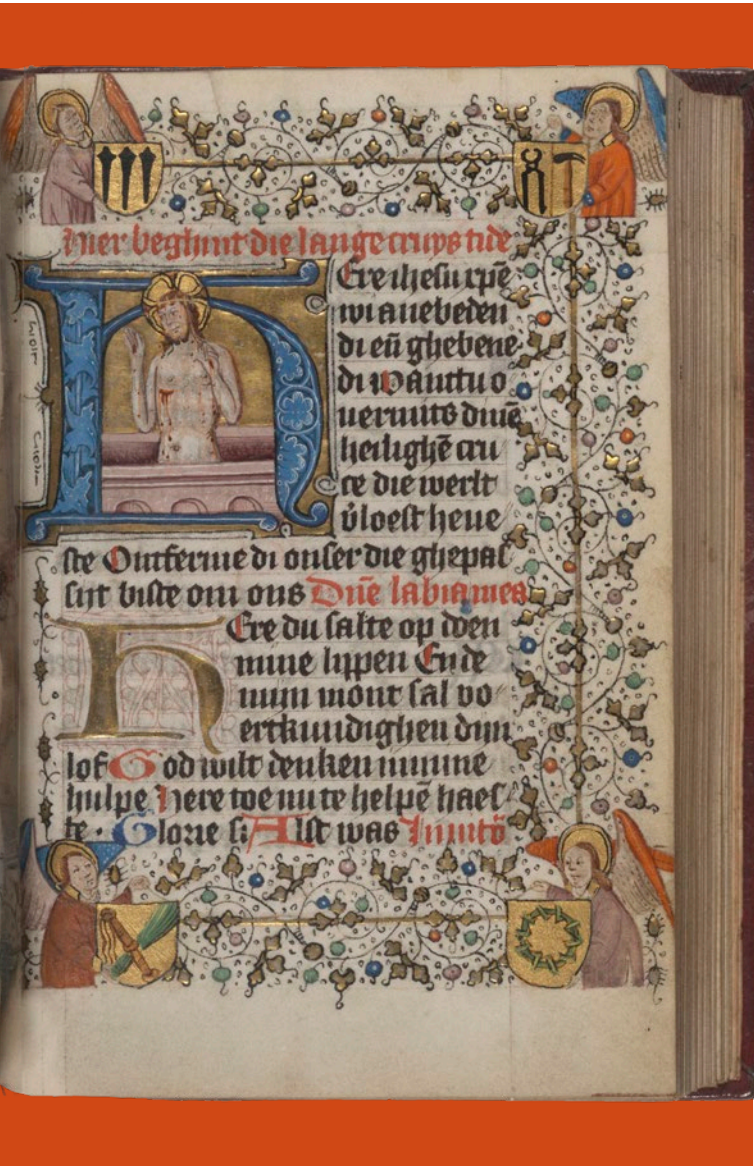 Hier beghint die lange cruys tide
HEre ihesu xpē
wi anebeden
di eñ ghebene
di Wantu o
uermits dinē
heilighē cru
ce die werlt
v̄loest heue
ste Ontferme di onser die ghepas
sijt biste om ons Dñe labia mea
HEre du salte op doen
mine lippen Ende
mijn mont sal vo
ertkundighen dijn
lof God wilt denken in mine
hulpe Here toe mi te helpē haes
te. Glorie si Alst was